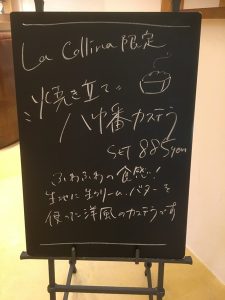 La Collina 限定
焼き立て
八幡カステラ
SET 885yen
ふわふわの食感!
生地に生クリーム、バターを
使った洋風のカステラです